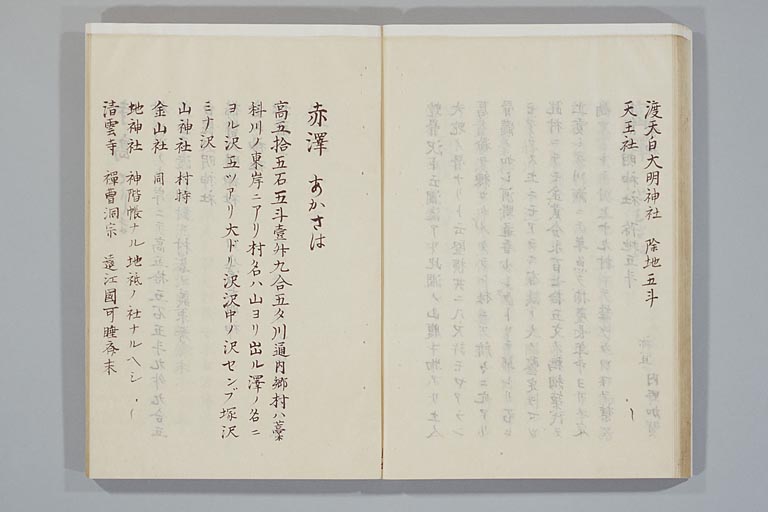 渡天白大明神社 除地五斗
天王社 〃
赤澤 あかさは
高五拾五石五斗壹升九合五夕川通内郷村ハ藁
科川ノ東岸ニアリ村名ハ山ヨリ出ル澤ノ名ニ
ヨル沢五ツアリ大ドル沢沢中ノ沢センブ塚沢
ミナ沢
山神社 村持
金山社 同
地神社 神階帳ナル地祇ノ社ナルヘシ 〃
清雲寺 禅曹洞宗 遠江國可睡斎末